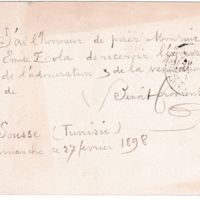 J'ai l'honneur de prier Monsieur
Emile Zola de recevoir l'expression
de l'admiration & de la vénération
de
Sousse (Tunisie)
Dimanche ce 27 février 1898